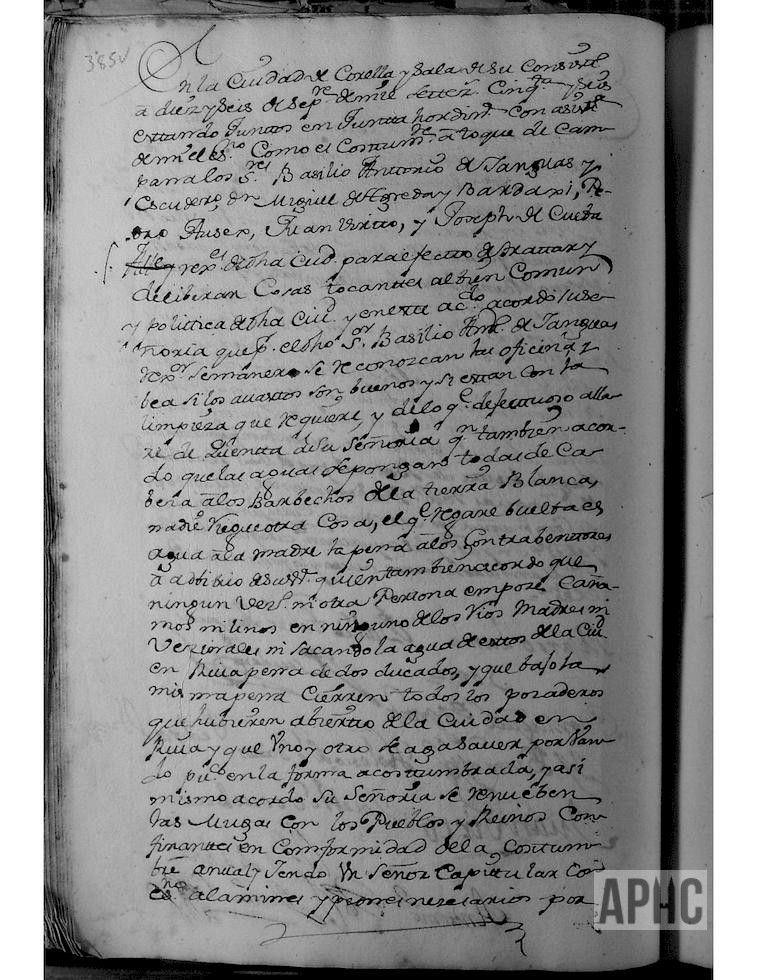 385v
En la Ciudad de Corella y Sala de su Consist.l
a diez y seis de sep.re de mil settez.s Cinq.ta y seis
esttando Junttos en Juntta hordin.a con asist.a
de mi el ss.no Como es Costtum.re a toque de Cam
pana los S.res Basilio Anttonio de Sanguas y
Escudero, dn Miguel de Agreda y Bandari, Pe-
dro Auser, Juan Virtto, y Joseph de Cueba
rex.es de dha Ciud. para efectto de trattar y
deliberar Cosas tocanttes al bien Comun
y polittica de dha Ciu.d y en estte ac.do acordo su se-
ñoria que p. el dho S.or Basilio Ant.o de Sanguas
rex.or Semanero se reconozcan las oficinas y
bea si los avasttos son buenos y si esttan con la
limpieza que requiere, y de lo q.e defecttuoso alla-
re de Quentta a su Señoria q.n tambien acor-
do que las aguas se pongan todas de Ca-
beza a los Barbechos de la tierra Blanca,
nadie riegue otra Cosa, el q.e regare buelta el
agua a la madre la pena a los Contrabenttores
a adbitrio de su S.ria quien tambien acordo que
ningun Vez.o ni otra Persona empoze Caña-
mos ni linos en ninguno de los Rios Madres ni
Vezinales ni sacando la agua de estos de la Ciu.d
en Rina pena de dos ducados, y que bajo la
misma pena Cierren todos los pozaderos
que hubieren abiertto de la Ciudad en
Rina y que Uno y otro se aga saver por Van-
do pu.co en la forma acosttumbrada, y asi
mismo acordo su Señoria se renueben
las Mugas con los Pueblos y Reinos Con-
finantes en Comformidad de la Costtum-
bre anual yendo Un Señor Capitular Con
es.no alamines y peones nezesarios por
APHC